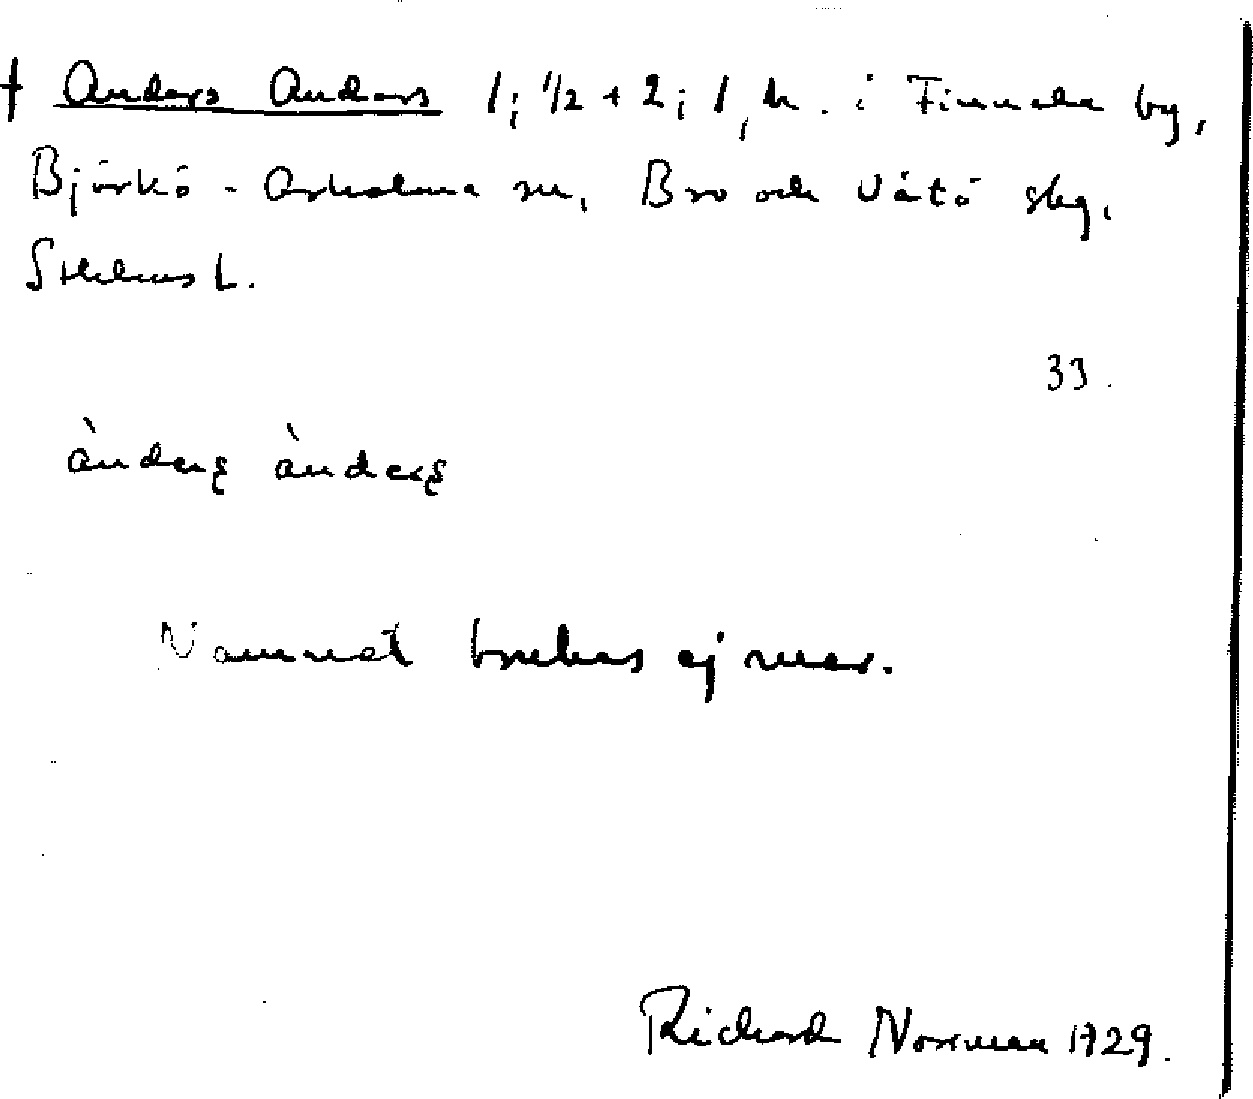 † Anders Anders 1; 1/2 + 2; 1, h. i Finnala by,
Björkö - Arholma sn, Bro och Vätö skg,
Sthlms l.
33.
ànders ànders
Namnet brukas ej mer.
Richard Norrman 1929.